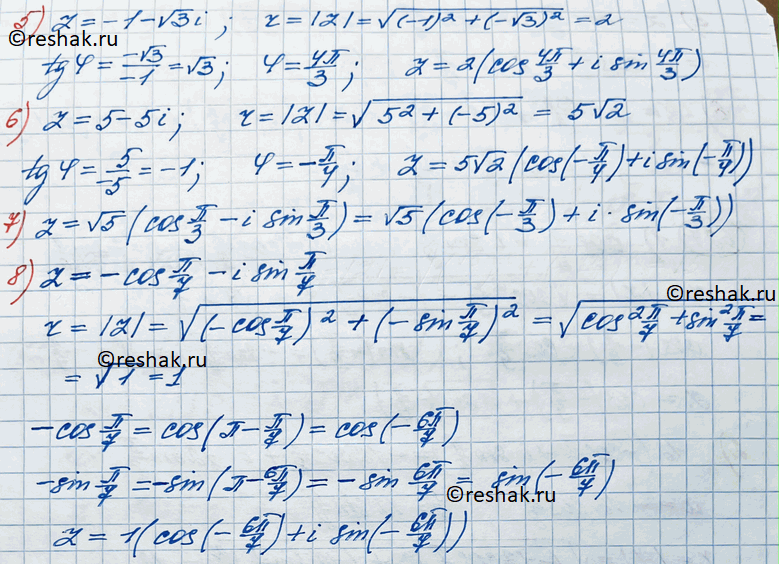 5) z = -1 - √3 i; r = |z| = √((-1)² + (-√3)²) = 2
tg φ = -√3/-1 = √3; φ = 4π/3; z = 2(cos 4π/3 + i sin 4π/3)
©reshak.ru
6) z = 5 - 5i; r = |z| = √(5² + (-5)²) = 5√2
tg φ = 5/-5 = -1; φ = -π/4; z = 5√2 (cos(-π/4) + i sin(-π/4))
7) z = √5 (cos π/3 - i sin π/3) = √5 (cos(-π/3) + i · sin(-π/3))
8) z = -cos π/7 - i sin π/7
©reshak.ru
r = |z| = √((-cos π/7)² + (-sin π/7)²) = √(cos² π/7 + sin² π/7 =
©reshak.ru
= √1 = 1
-cos π/7 = cos(π - π/7) = cos(-6π/7)
-sin π/7 = -sin(π - 6π/7) = -sin 6π/7 = sin(-6π/7)
©reshak.ru
z = 1(cos(-6π/7) + i sin(-6π/7))
©reshak.ru